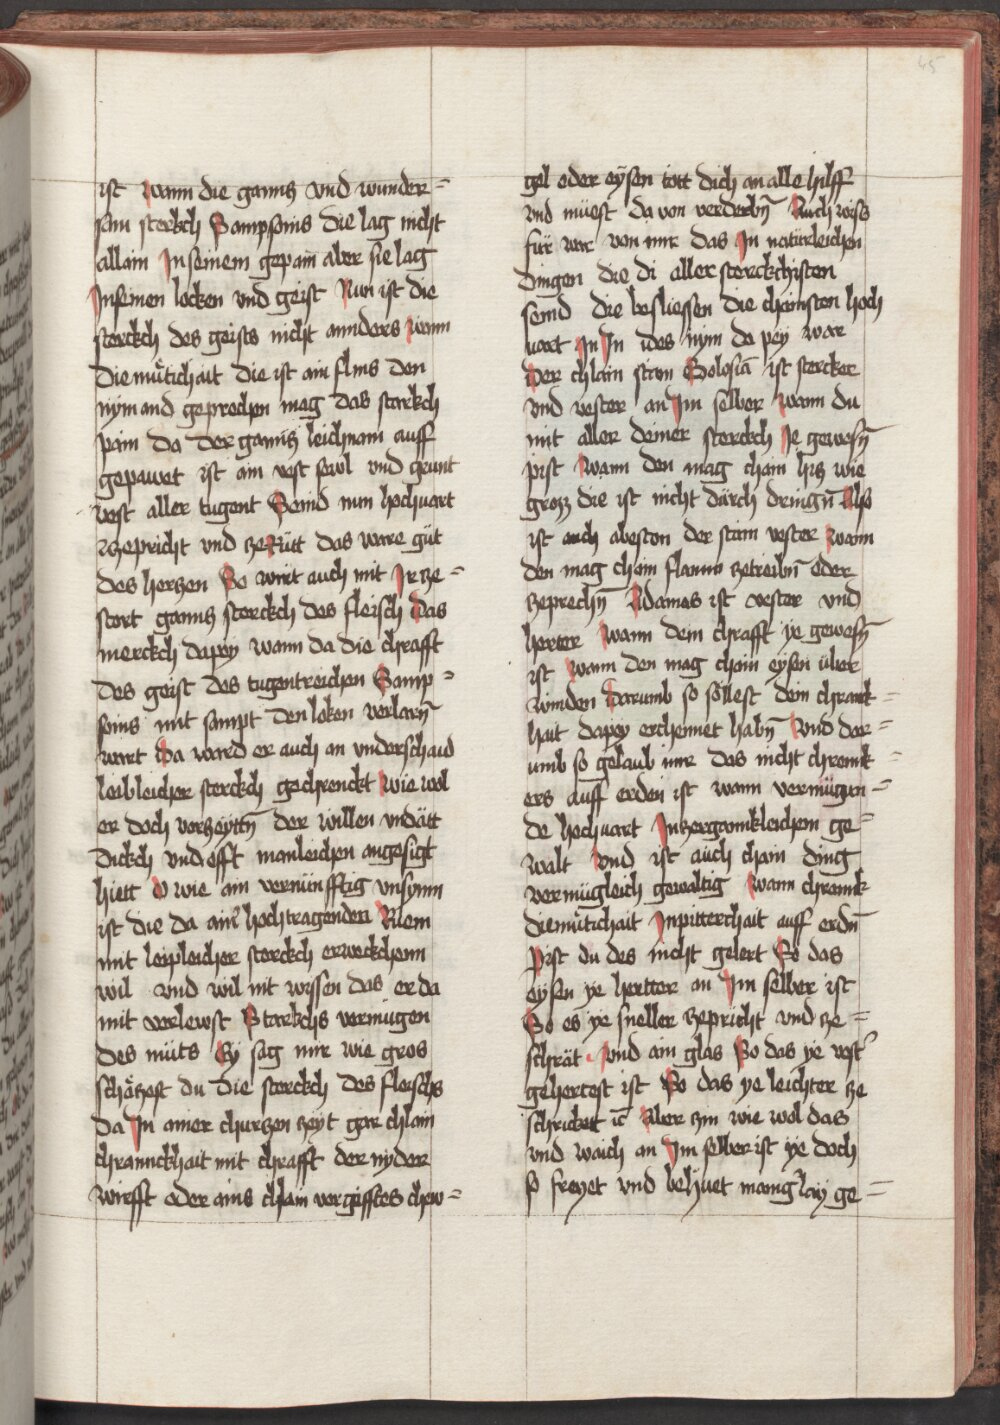 45
ist wann die ganns vnd wunder=
sam sterkch Sampsonis die lag nicht
allain In seinem gepain aber sie lag
Inseinen locken vnd geist Nun ist die
sterckch des geists nicht annders wann
Die mutichait die ist ain flins den
nymand geprechen mag das starkch
pain da der ganns leichnam auff
gepauet ist ain vest sewl vnd grunt
vest aller tugent Seind nun hochuart
zepricht vnd zerutt das ware gut
des herzen So wirt auch mit Ir ze=
stort ganns sterckch des fleisch Das
merckch dapey wann da die chrafft
des geist des tugentreichen Samp=
sonis mit sampt den loken verlarn̄
wart Da ward er auch an vnderschaid
leibleicher sterckch gechrenckt wie wol
er doch vorzeyttn̄ der willen vndätt
Dickch vnd offt manleichen angesigt
hiett O wie ain vernunfftig vnsynn
ist die da ainr̄ hochtragenden Kiem
mit leipleicher sterckch erweckchenn
wil vnd wil nit wissen das er da
mit verlewst Starkchs vermugen
des muts Ey sag mir wie gros
schätzest du die sterckch des fleischs
Da In ainer churtzen zeyt gar chlain
chrannckhait mit chrafft der nyder
wirfft oder ains chlain vergifftes chew=
gel oder eysen tott dich an alle hilff
vnd müest da von verderbn̄ Auch wiss
für war von mir das In naturleichen
Dingen die di aller sterckchisten
seind die besliessen die chainsten hoch
uart In In des nym da pey war
Der chlain stain Golosia ist stercker
vnd vester an Im selber wann du
mit aller deiner sterckch Ie gewesn̄
pist wann den mag chain hitz wie
gross die ist nicht durch dringn̄ Also
ist auch abeston der stain vester wann
den mag chain flamm zetreibn̄ oder
zeprechn̄ Adamas ist vester vnd
herter wann dem chrafft ye gewesn̄
ist wann den mag chain eysen über
winden Darumb so sollest dein chranck=
hait dapey erchennet habn̄ Vnd dar=
umb so gelaub mir das nicht chrenck=
ers auff erden ist wann vermugun=
de hochuart Inzergannkleichem ge=
walt Vnd ist auch chain ding
vermugleich gewaltig wann chrenck
diemutichait Inpitterchait auff erdn̄
Pist du des nicht gelert So das
eysen ye hertter an Im selber ist
So es ye sneller zepricht vnd ze=
schrät Vnd ain glas So das ye vest̄
gehertest ist So das ye leichter ze
schricket ic̄ Aber zin wie wol das
vnd waich an Im selber ist ye doch
so freyet vnd behuet manig lay ge=